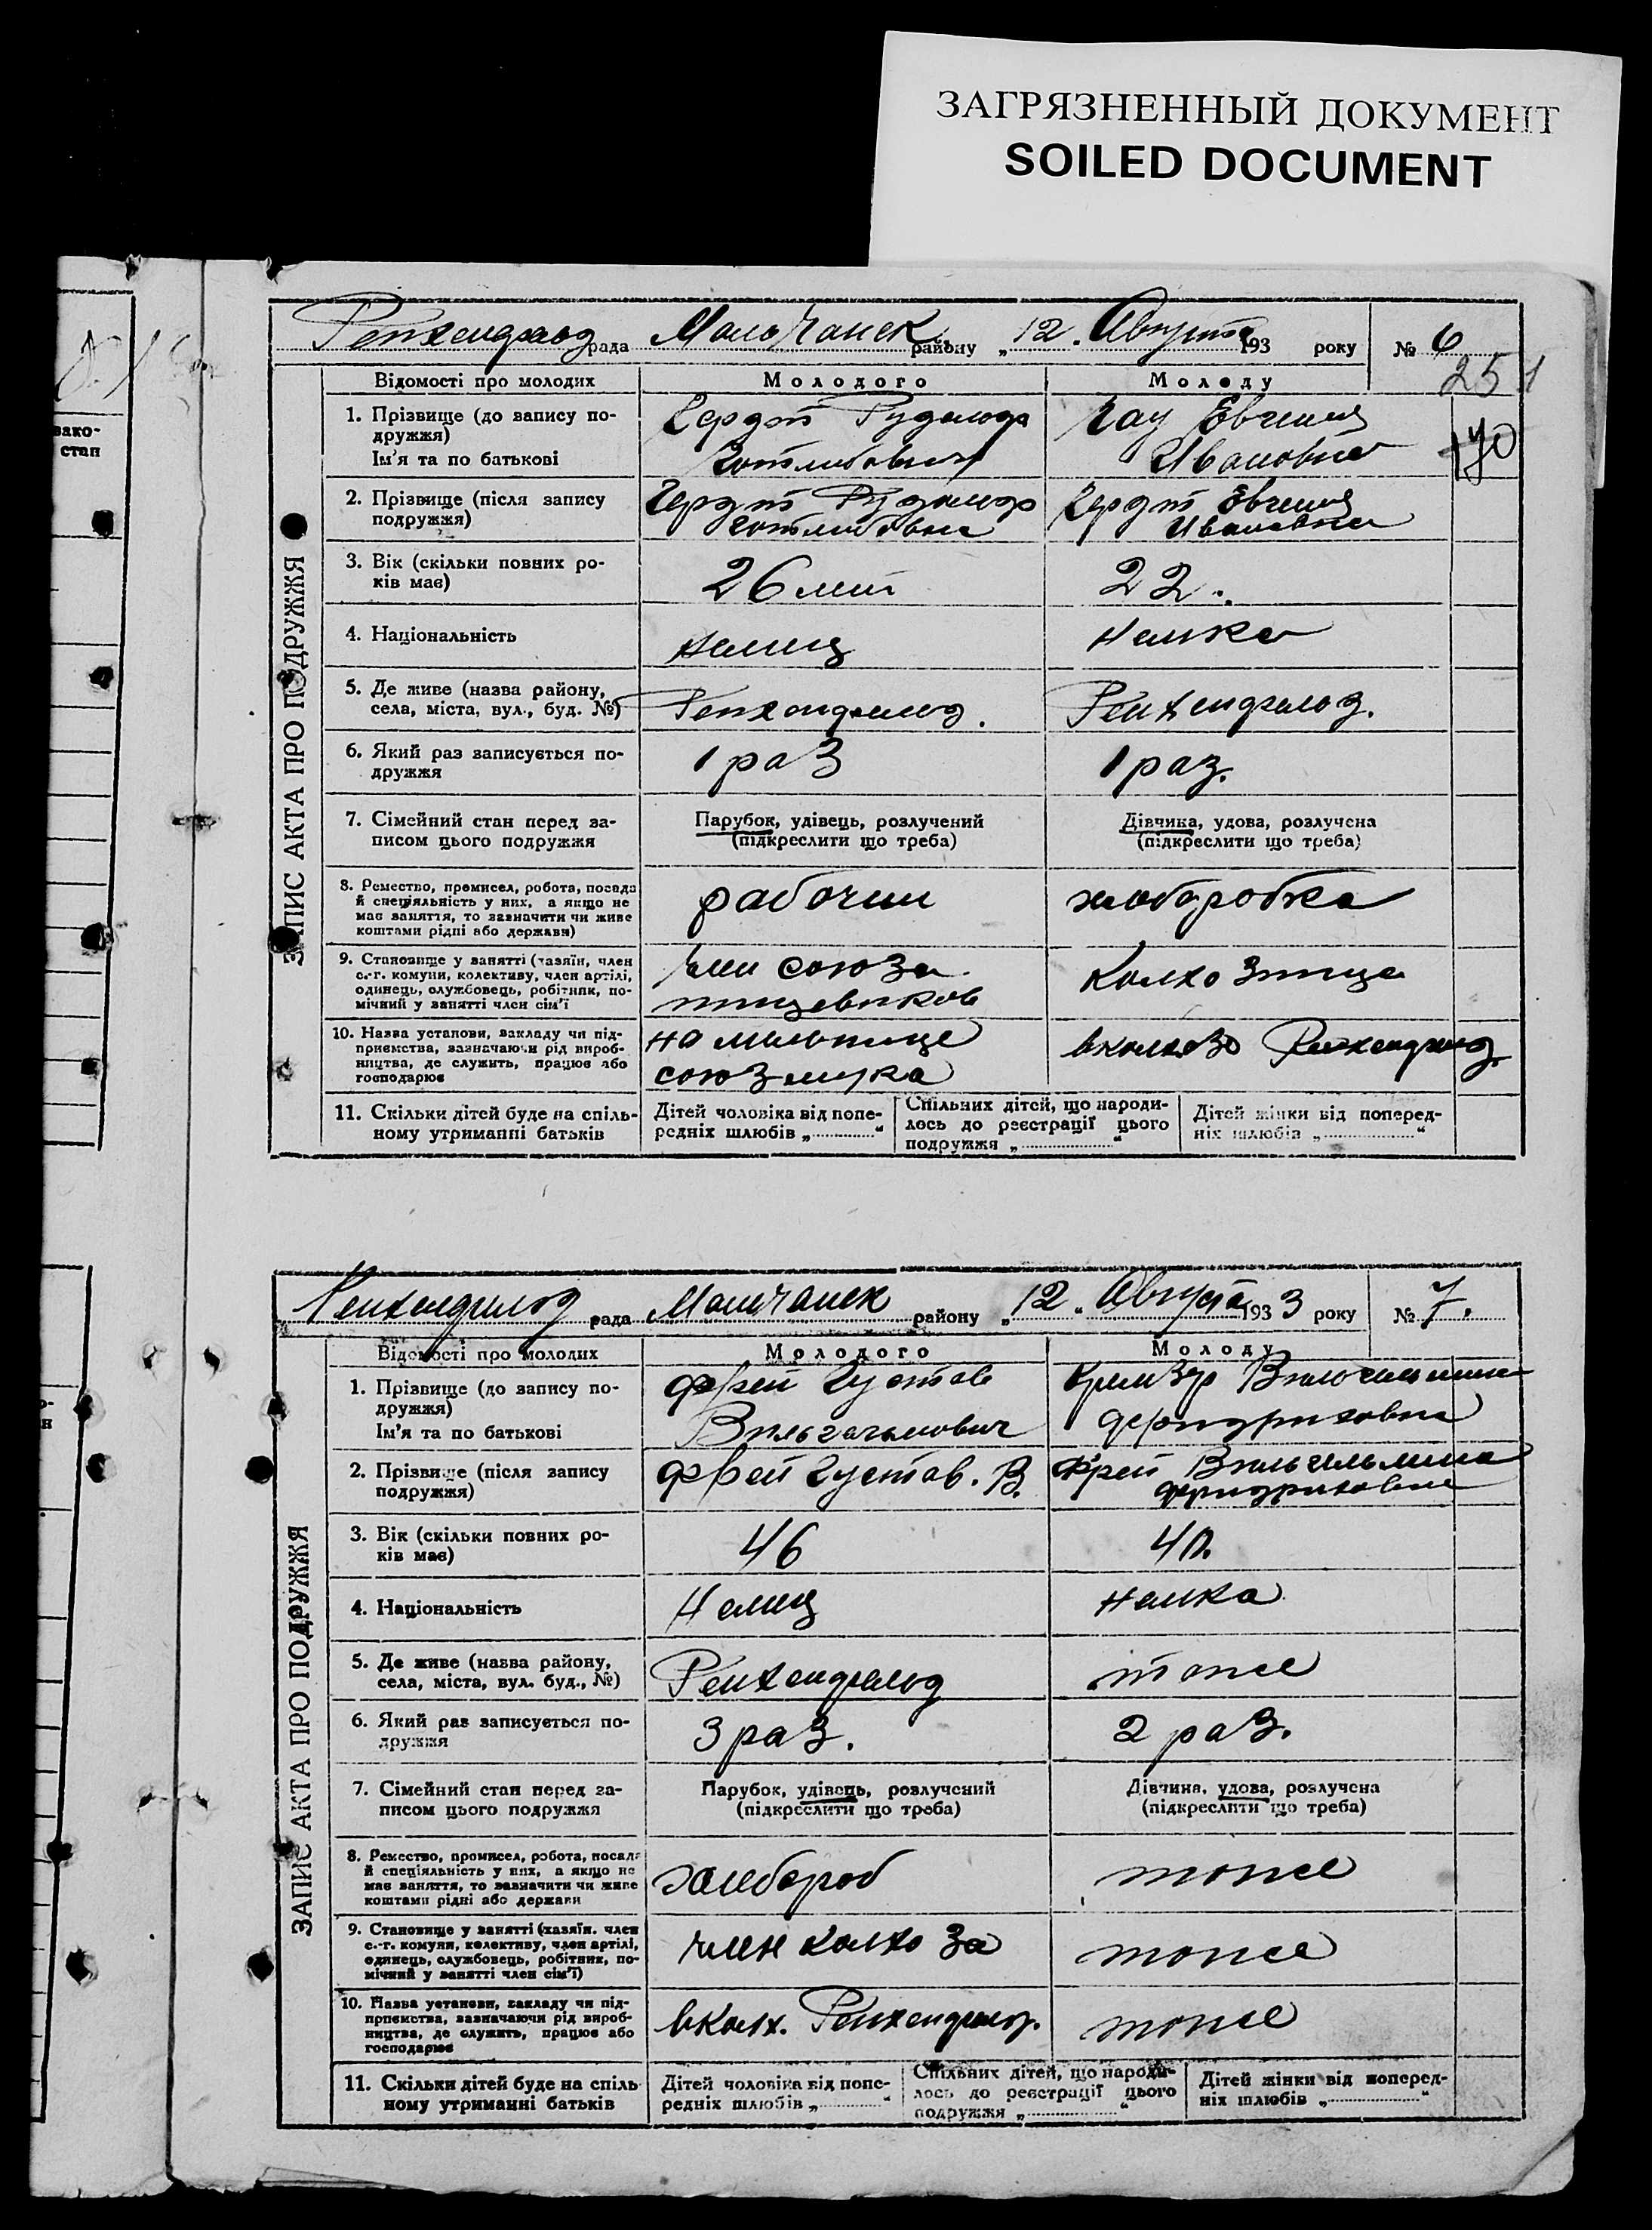 ЗАГРЯЗНЕННЫЙ ДОКУМЕНТ
SOILED DOCUMENT
рада района „12. Августа 193 року № 6
251
170
вако-
стан
ЗАПИС АКТА ПРО ПОДРУЖЖЯ
Відомості про молодих Молодого Молоду
1. Прізвище (до запису по-
дружжя)
Ім'я та по батькові
Рудольф
Готлибович
Гау Евгения
Ивановна
2. Прізвище (після запису
подружжя)
Рудольф
Евгения
Ивановна
3. Вік (скільки повних ро-
ків має)
26 лет 22.
4. Національність немец немка
5. Де живе (назва району,
села, міста, вул., буд. №)
6. Який раз записується по-
дружжя
1 раз 1 раз.
7. Сімейний стан перед за-
писом цього подружжя
Парубок, удівець, розлучений
(підкреслити що треба)
Дівчина, удова, розлучена
(підкреслити що треба)
8. Ремество, промисел, робота, посада
й спеціяльність у них, а якщо не
має заняття, то зазначити чи живе
коштами рідні або держави)
рабочий хлоборобка
9. Становище у занятті (хазяїн, член
с.-г. комуни, колективу, член артілі,
одинець, службовець, робітник, по-
мічний у занятті член сім'ї
член союза
пищевиков
колхозница
10. Назва установи, закладу чи під-
приємства, зазначаючи рід вироб-
ництва, де служить, працює або
господарює
на мельнице
союзмука
в колхозе
11. Скільки дітей буде на спіль-
ному утриманні батьків
Дітей чоловіка від попе-
редніх шлюбів „ “
Спільних дітей, що народи-
лось до реєстрації цього
подружжя „ “
Дітей жінки від поперед-
ніх шлюбів „ “
рада району „12. Августа 1933 року № 7.
ЗАПИС АКТА ПРО ПОДРУЖЖЯ
Відомості про молодих Молодого Молоду
1. Прізвище (до запису по-
дружжя)
Ім'я та по батькові
Фрей Густав
Вильгельмович
Вильгельмина
Фридриховна
2. Прізвище (після запису
подружжя)
Фрей Густав. В.
Фрей Вильгельмина
Фридриховна
3. Вік (скільки повних ро-
ків має)
46 40.
4. Національність Немец немка
5. Де живе (назва району,
села, міста, вул. буд., №)
тоже
6. Який раз записується по-
дружжя
3 раз. 2 раз.
7. Сімейний стан перед за-
писом цього подружжя
Парубок, удівець, розлучений
(підкреслити що треба)
Дівчина, удова, розлучена
(підкреслити що треба)
8. Ремество, промисел, робота, посада
й спеціяльність у них, а якщо не
має заняття, то зазначити чи живе
коштами рідні або держави
хлебороб тоже
9. Становище у занятті (хазяїн. член
с.-г. комуни, колективу, член артілі,
одинець, службовець, робітник, по-
мічний у занятті член сім'ї)
член колхоза тоже
10. Назва установи, закладу чи під-
приємства, зазначаючи рід вироб-
ництва, де служить, працює або
господарює
в колх. тоже
11. Скільки дітей буде на спіль
ному утриманні батьків
Дітей чоловіка від попе-
редніх шлюбів „ “
Спільних дітей, що народи-
лось до реєстрації цього
подружжя „ “
Дітей жінки від поперед-
ніх шлюбів „ “